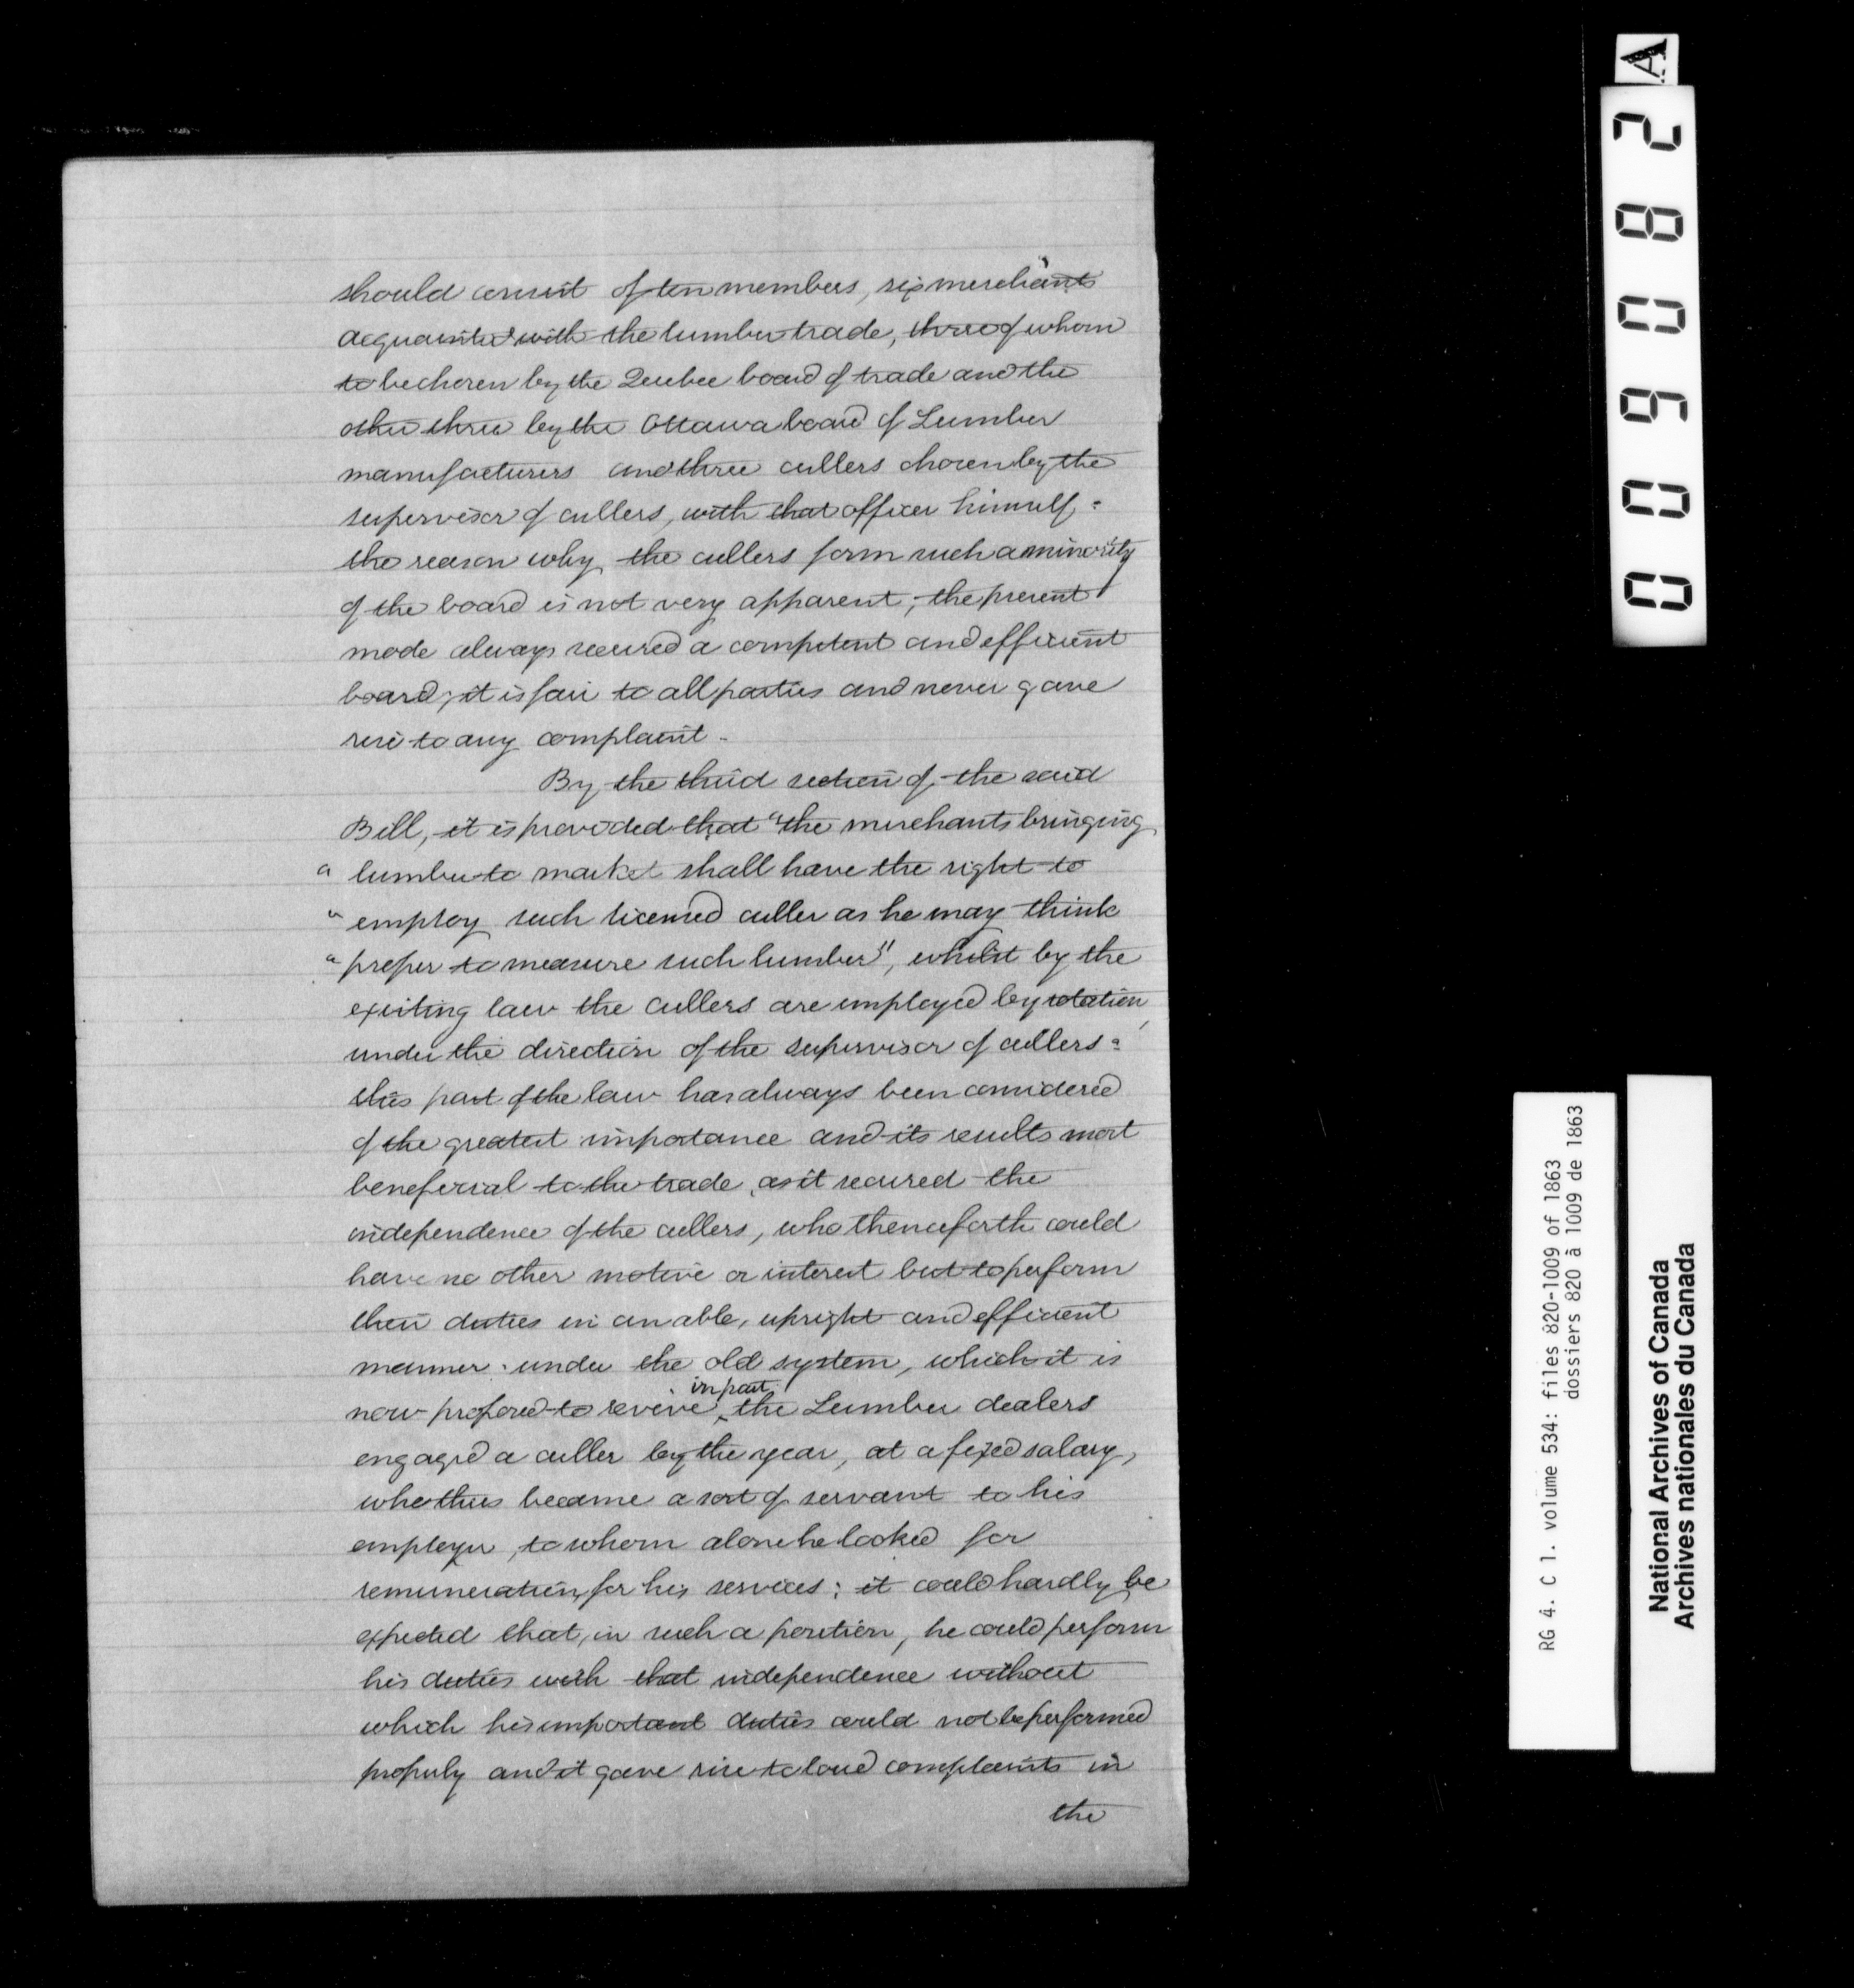 should consist of ten members, six merchants
acquainted with the lumber trade, three of whom
to be chosen by the Quebec board of trade and the
other three by the Ottawa board of Lumber
manufacturers and three cullers chosen by the
supervisor of cullers, with that officer himself =
the reason why the cullers form such a minority
of the board is not very apparent; the present
mode always secured a competent and efficient
board; it is fair to all parties and never gave
rise to any complaint -
By the third section of the said
Bill, it is provided that "the merchants bringing
" lumber to market shall have the right to
" employ such licensed culler as he may think
" proper to measure such lumber", whilst by the
existing law the cullers are employed by rotation,
under the direction of the supervisor of cullers =
this part of the law has always been considered
of the greatest importance and its results most
beneficial to the trade, as it secured the
independence of the cullers, who thenceforth could
have no other motive or interest but to perform
their duties in an able, upright and efficient
manner: under the old system, which it is
in part
now proposed to revive, the Lumber dealers
engaged a culler by the year, at a fixed salary,
who thus became a sort of servant to his
employer, to whom alone he looked for
remuneration for his services; it could hardly be
expected that, in such a position, he could perform
his duties with that independence without
which his important duties could not be performed
properly and it gave rise to loud complaints in
the
A
00908 2
RG 4. C 1. volume 534: files 820-1009 of 1863
dossiers 820 à 1009 de 1863
National Archives of Canada
Archives nationales du Canada